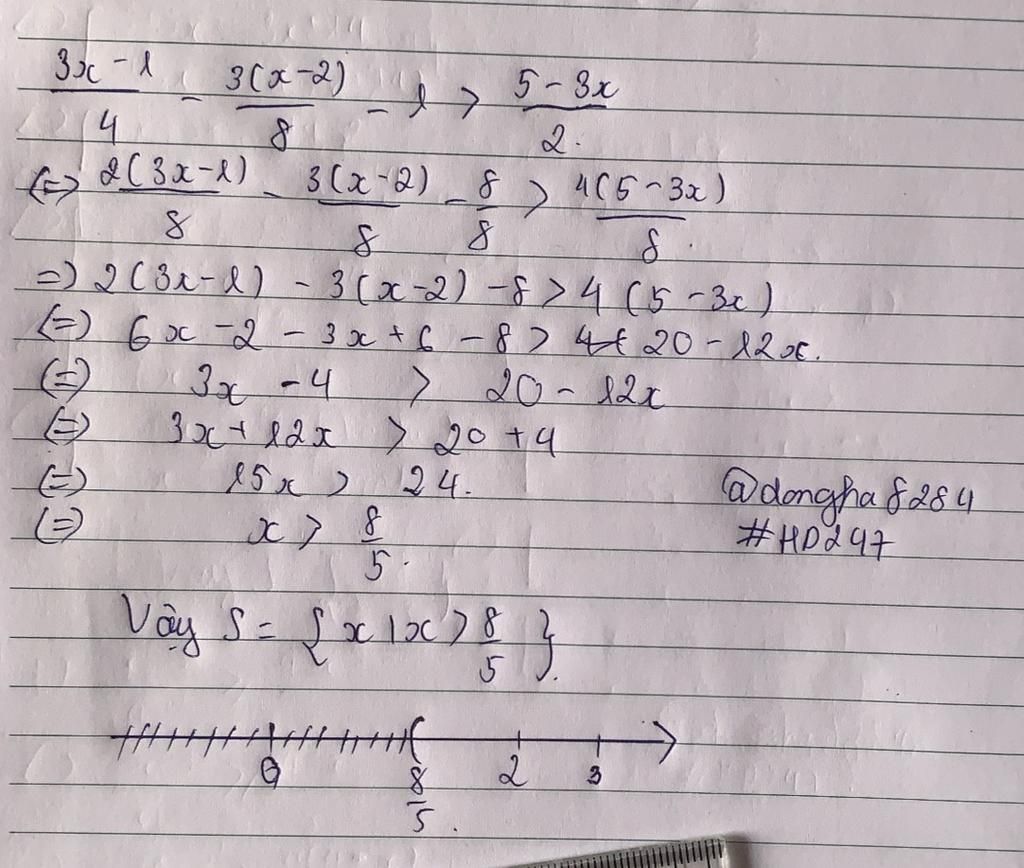 (3x - 1)/4 - 3(x-2)/8 - 1 > (5 - 3x)/2.
(=) 2(3x-1)/8 - 3(x-2)/8 - 8/8 > 4(5-3x)/8.
=) 2(3x-1) - 3(x-2) - 8 > 4(5-3x)
(=) 6x - 2 - 3x + 6 - 8 > 20 - 12x.
(=) 3x - 4 > 20 - 12x
(=) 3x + 12x > 20 + 4
(=) 15x > 24.
@dongha8284
(=) x > 8/5.
#HD247
Vậy S = {x | x > 8/5}.
0 8/5. 2 3